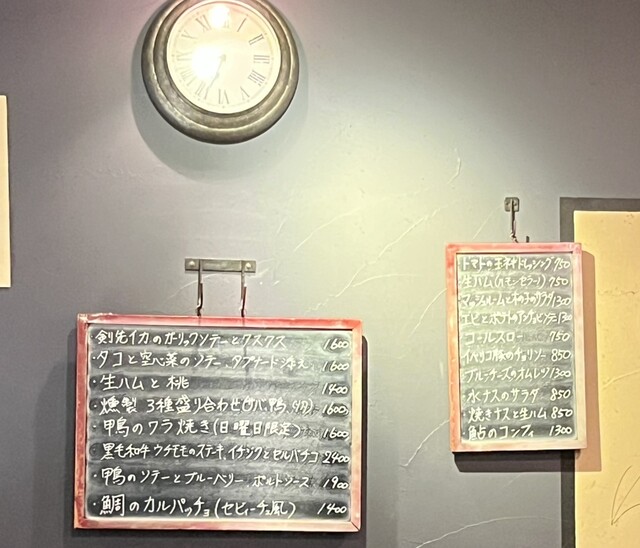 ・剣先イカのガーリックソテーとクスクス 1600
・タコと空心菜のソテー、タプナード添え 1600
・生ハムと桃 1400
・燻製 3種盛り合わせ 1600
・甲鳥のワラ焼き(日曜日限定) 1600
・黒毛和牛ウチモモのステーキ、イチジクとセルバチコ 2400
・鴨のソテーとブルーベリー、ポルトソース 1900
・鯛のカルパッチョ(セビーチェ風) 1400
トマトの玉ネギドレッシング 750
生ハム(ハモン・セラーノ) 750
マッシュルームと木の子のサラダ 1300
エビとポテトのアンチョビソテー 1300
コールスロー 750
イベリコ豚のチョリソー 850
ブルーチーズのオムレツ 1300
水ナスのサラダ 850
焼きナスと生ハム 850
鮎のコンフィ 1300